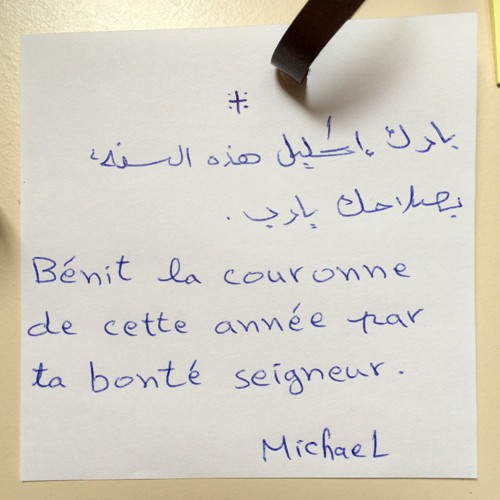 بارك إكليل هذه السنة
بصلاحك يارب.
Bénit la couronne
de cette année par
ta bonté seigneur.
Michael